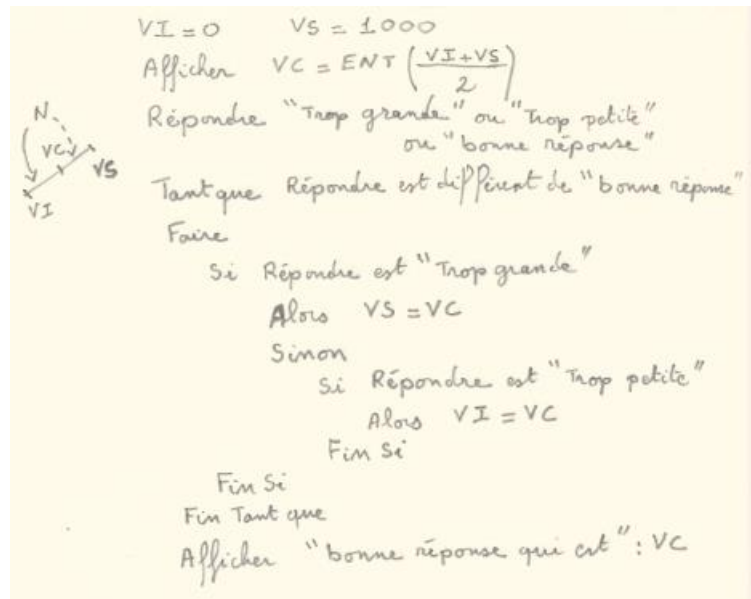 VI = 0 VS = 1000
Afficher VC = ENT (VI+VS / 2)
Répondre "Trop grande" ou "Trop petite"
ou "bonne réponse"
N
VC
VS
VI
Tant que Répondre est différent de "bonne réponse"
Faire
Si Répondre est "Trop grande"
Alors VS = VC
Sinon
Si Répondre est "Trop petite"
Alors VI = VC
Fin Si
Fin Si
Fin Tant que
Afficher "bonne réponse qui est" : VC